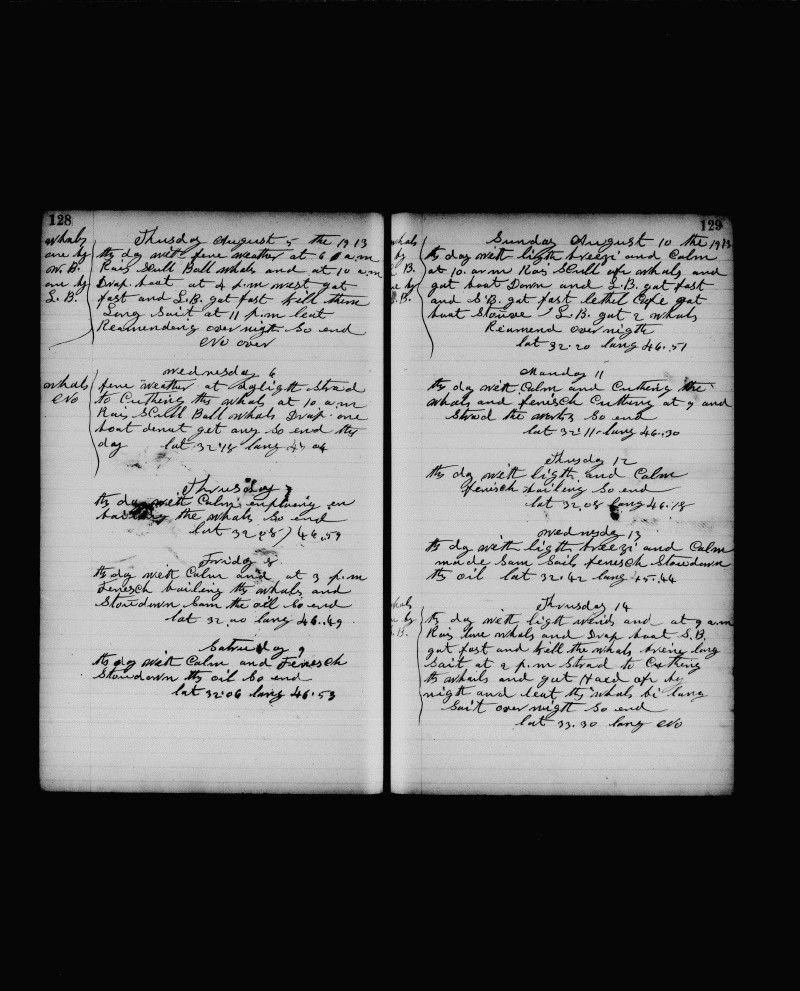 128
Thusday August 5 the 1913
whals
one by
W. B.
one by
L. B.
ths day with fene weather at 6 a.m
Rais Scull Ball whals and at 10 a.m
Drap boat at 4 p.m west gat
fast and L.B. gat fast kill them
Long Sait at 11 p.m leat
Reamendeng over nigth So end
No over
Wednesday 6
whals
No
fene weather at dylight Strad
to Cutheng the whals at 10 a.m
Rais SCull Ball whals Drap one
boat denut get any So end ths
day lat 32.18 lang
Thursday 7
ths day with Calm enploaing en
the whals So end
lat 32 28 46.59
Friday 8
ths day with Calm and at 3 p.m
Fenesch boileng ths whals and
Stowdown Sam the oil So end
lat 32.00 lang 46.49
Satruday 9
ths day with Calm and Fenesch
Stowdown ths oil So end
lat 32.06 lang 46.53
129
Sunday August 10 the 1913
whals
by
S. B.
one by
L.B.
ths day with ligth breezi and Calm
at 10. a.m Rais SCull of whals and
gat boat Down and L.B. gat fast
and S.B. gat fast lethel Cafe gat
boat Stouve L.B. gat 2 whals
Reamend over nigth
lat 32.20 lang 46.51
Manday 11
ths day with Calm and Cutheng the
whals and fenesch Cutheng at 9 and
Strad the works So end
lat 32.11 lang 46.30
Thusday 12
ths day with ligth and Calm
fenesch boileng So end
lat 32.08 lang 46.18
Wednesday 13
ths day with ligth breezi and Calm
made Sam Sail fenesch Stowdown
ths oil lat 32.42 lang 45.44
Thrusday 14
whals
by
S.B.
ths day with ligth weinds and at 9 a.m
Rais lone whals and Drap boat S.B.
gat fast and kill the whals breing long
Sait at 2 p.m Strad to Cutheng
ths whals and gat Haed of by
nigth and leat ths whals bi lang
Sait over nigth So end
lat 33.30 lang No